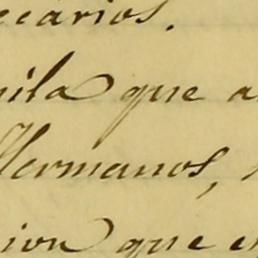 ecarios.
uila que a
Hermanos,
ion que e